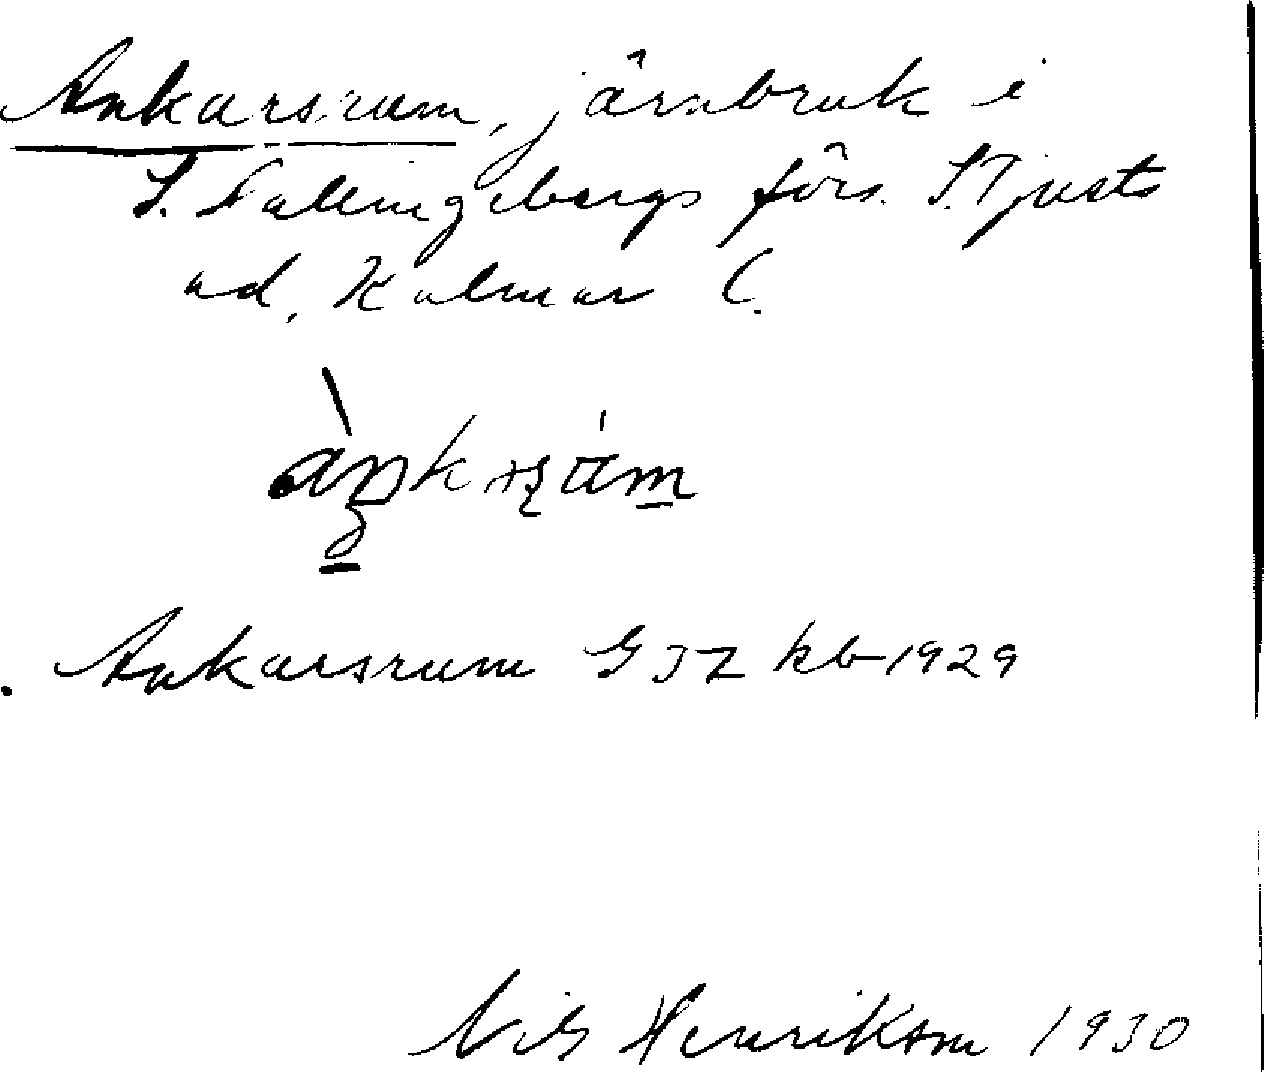 Ankarsrum, järnbruk i
S. Hallingebergs förs. S. Tjusts
hd, Kalmar l.
Ankarsrum GJZ kb 1929
Nils Henrikson 1930